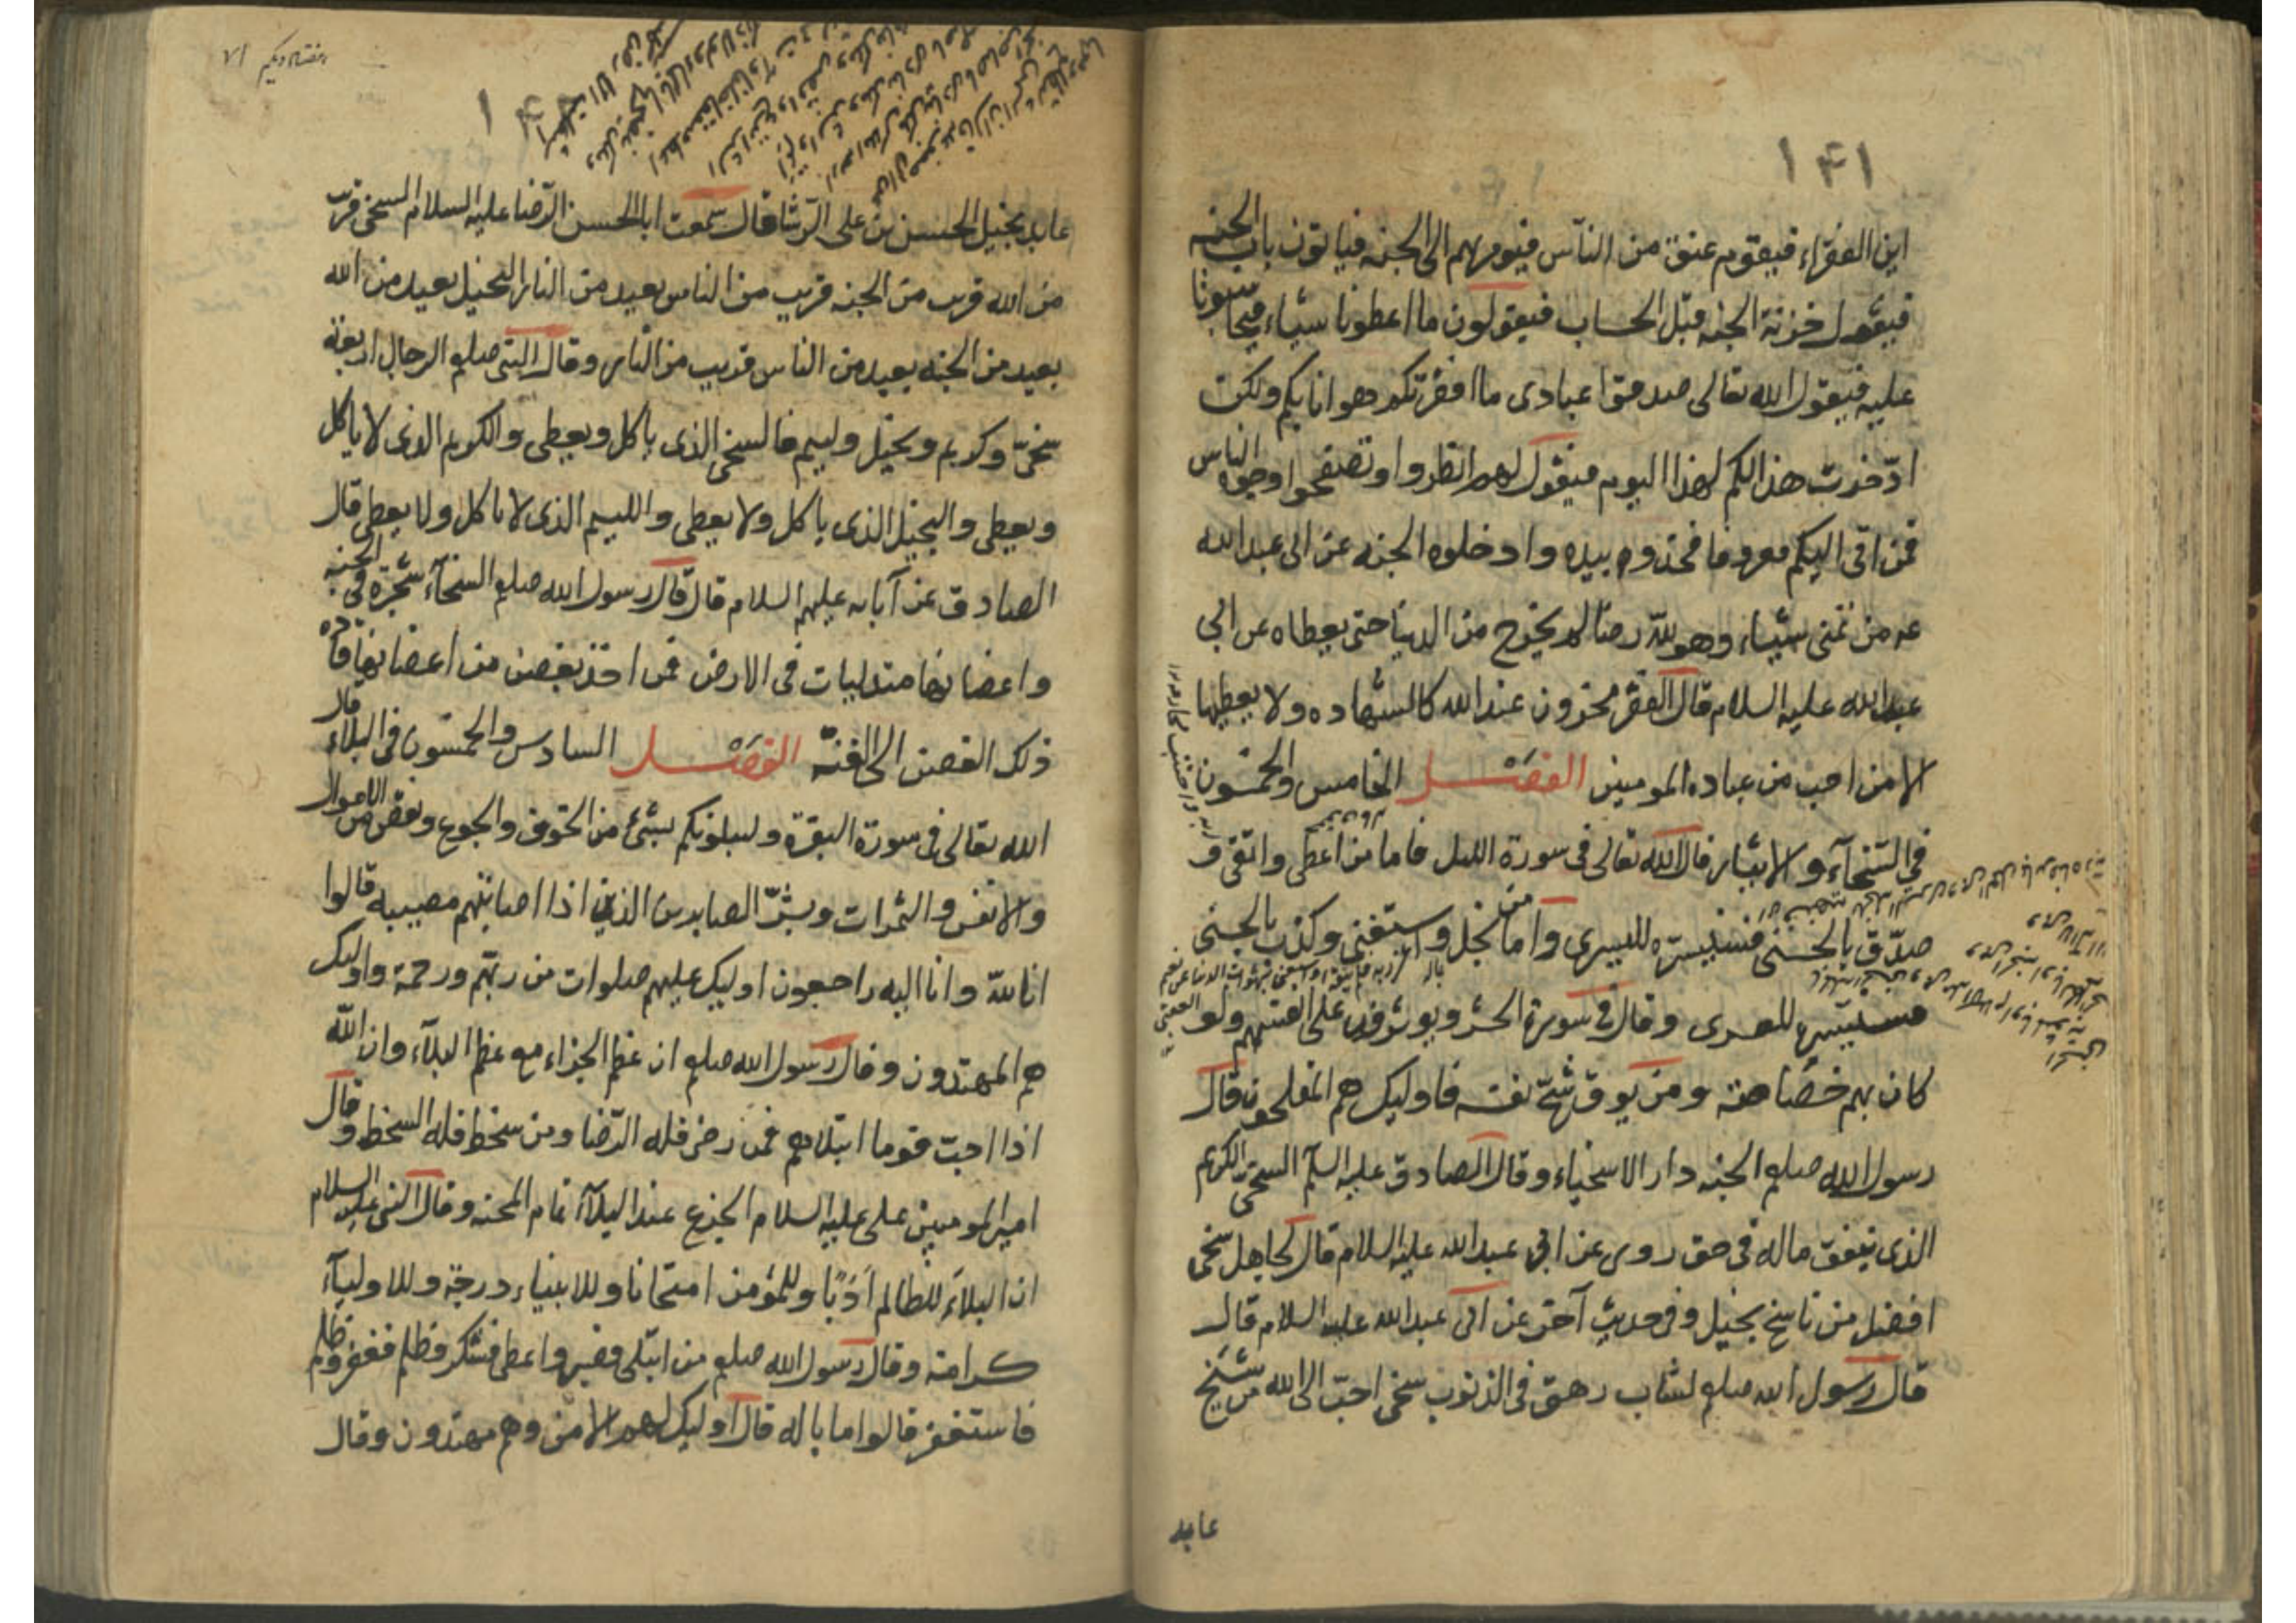 ١٤١
اين الفقراء فيقوم عنق من الناس فيومر بهم الى الجنه فياتون باب الجنه
فيقول خزنة الجنه قبل الحساب فيقولون ما اعطونا شيئاء فيحاسبونا
عليه فيقول الله تعالى صدقوا عبادى ما افقرتكم هوانا بكم ولكن
ادّخرت هذا لكم لهذا اليوم فيقول لهم انظروا وتصفحوا وجوه الناس
فمن اتى اليكم معروفا فخذوه بيده وادخلوه الجنه عن ابى عبد الله
عه من تمنى شيئاء وهو لله رضا لم يخرج من الدنيا حتى يعطاه عن ابي
عبد الله عليه السلام قال الفقر مخزون عند الله كالشهاده ولا يعطيها
الا من احب من عباده المومنين الفصل الخامس والخمسون
في السّخآء والايثار قال الله تعالى فى سورة الليل فاما من اعطى واتقى و
صدّق بالحسنى فسنيسّره لليسرى وأما من بخل واستغنى وكذب بالحسنى
فسنيسّره للعسرى وقال فى سورة الحشر ويوثرون على انفسهم ولو
كان بهم خصاصة ومن يوق شحّ نفسه فاوليك هم المفلحون قال
رسول الله صلعم الجنه دار الاسخياء وقال الصادق عليه السلم السخى الكريم
الذى ينفق ماله فى حق روى عن ابى عبد الله عليه السلام قال لجاهل سخى
افضل من ناسخ بخيل وفى حديث آخر عن ابى عبد الله عليه السلام قال
قال رسول الله صلعم لشاب رهق فى الذنوب سخى احبّ الى الله من شيخ
عابد
هفتاد ويكم ٧١
عابد بخيل الحسن بن على الوشا قال سمعت ابا الحسن الرّضا عليه السلام السخى قريب
من الله قريب من الجنه قريب من الناس بعيد من النار البخيل بعيد من الله
بعيد من الجنه بعيد من الناس قريب من النار وقال النبى صلعم الرجال اربعة
سخىّ وكريم وبخيل ولييم فالسخى الذى ياكل ويعطى والكريم الذى لا ياكل
ويعطى والبخيل الذى ياكل ولا يعطى واللييم الذى لا ياكل ولا يعطى قال
الصادق عن آبايه عليهم السلام قال قال رسول الله صلعم السخآء شجرة فى الجنه
واغصانها متدليات فى الارض فمن اخذ بغصن من اغصانها قاده
ذلك الغصن الى الجنّة الفصل السادس والخمسون فى البلاء قال
الله تعالى فى سورة البقرة ولنبلونكم بشئ من الخوف والجوع ونقص من الاموال
والانفس والثمرات وبشّر الصابرين الذين اذا اصابتهم مصيبه قالوا
انا لله وانا اليه راجعون اوليك عليهم صلوات من ربّهم ورحمة واوليك
هم المهتدون وقال رسول الله صلعم ان عظم الجزاء مع عظم البلآء وان الله
اذا احبّ قوما ابتلاهم فمن رضى فله الرّضا ومن سخط فله السخط وقال
امير المومنين على عليه السلام الجزع عند البلآء تمام المحنه وقال النبى عليه السلام
ان البلاء للظالم أدبًا وللمؤمن امتحانا وللانبياء درجة وللاوليآء
كرامة وقال رسول الله صلعم من ابتلى فصبر واعطى فشكر وظلم فغفر وظلم
فاستغفر قالوا ما باله قال اوليك لهم الامن وهم مهتدون وقال